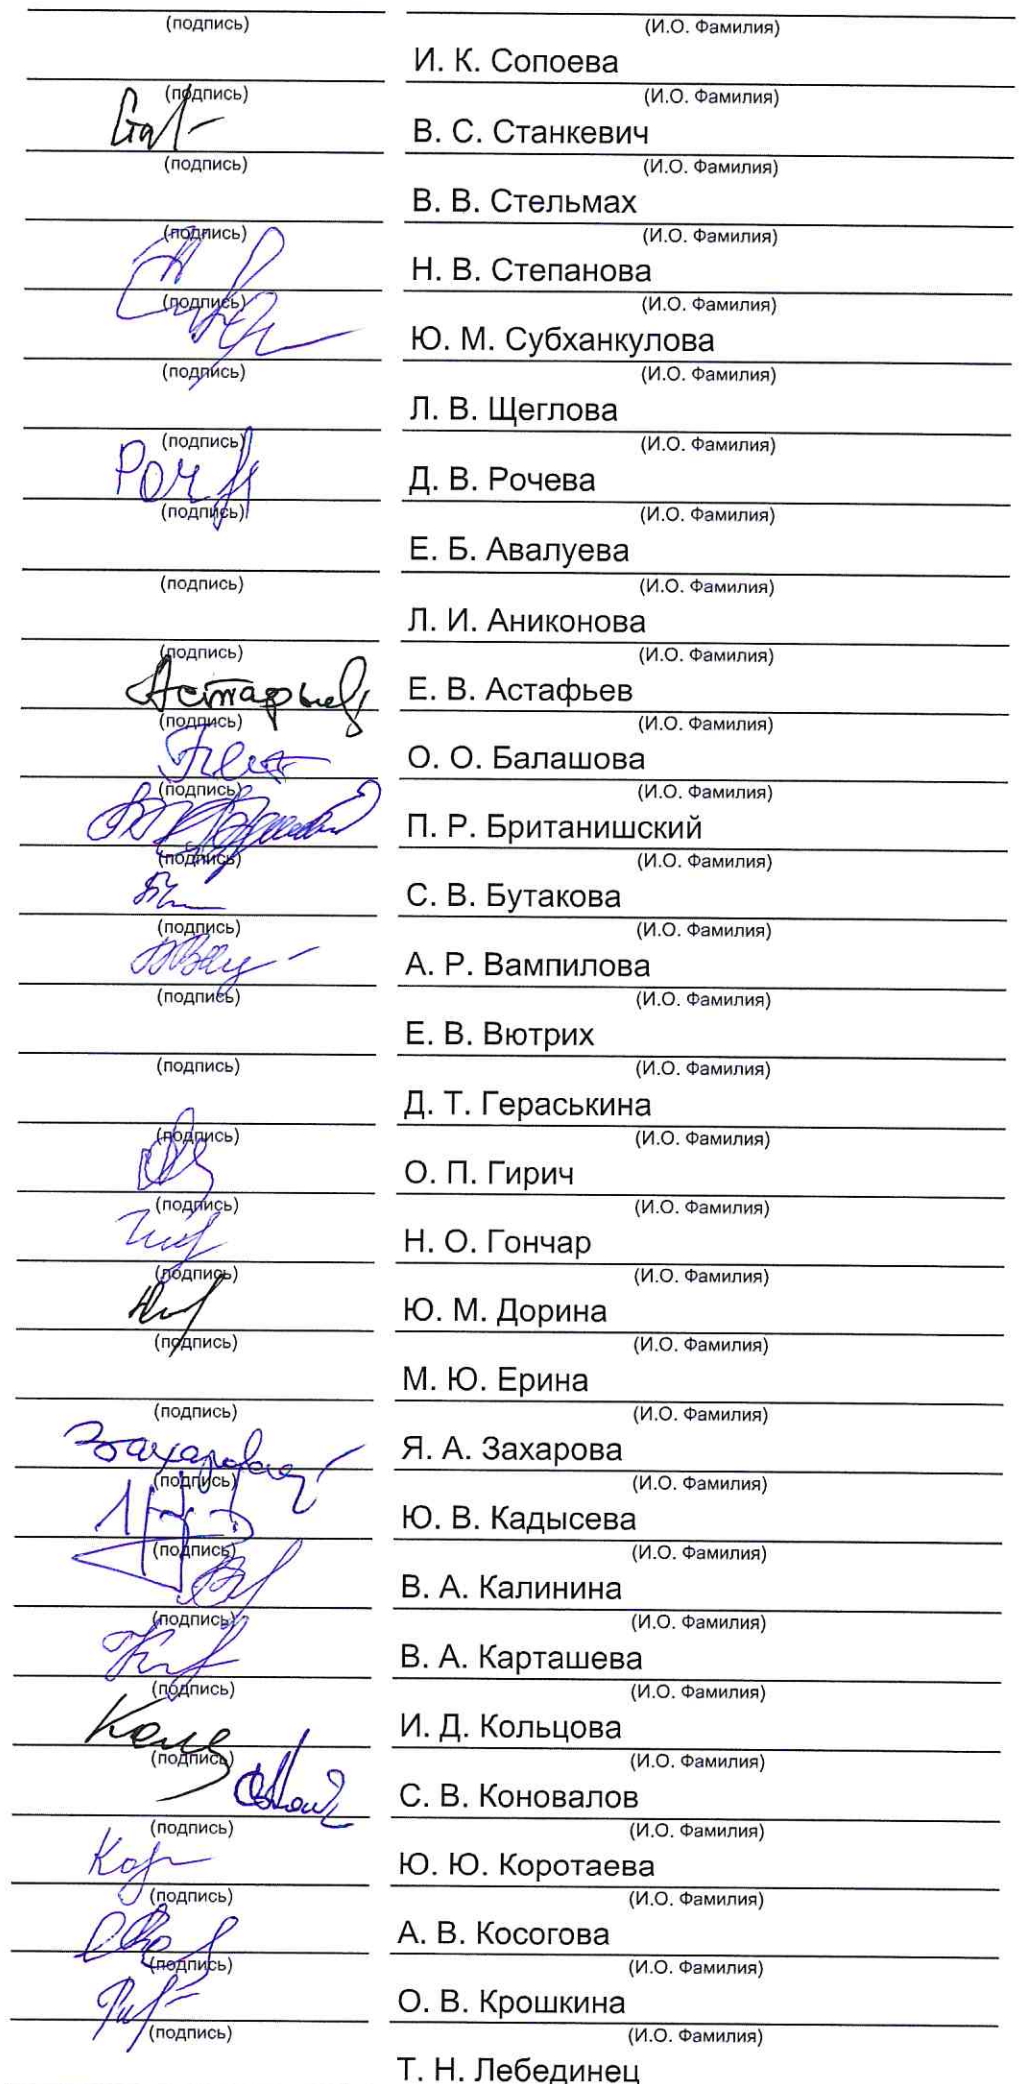 (подпись) (И.О. Фамилия)
И. К. Сопоева
(подпись) (И.О. Фамилия)
В. С. Станкевич
(подпись) (И.О. Фамилия)
В. В. Стельмах
(подпись) (И.О. Фамилия)
Н. В. Степанова
(подпись) (И.О. Фамилия)
Ю. М. Субханкулова
(подпись) (И.О. Фамилия)
Л. В. Щеглова
(подпись) (И.О. Фамилия)
Д. В. Рочева
(подпись) (И.О. Фамилия)
Е. Б. Авалуева
(подпись) (И.О. Фамилия)
Л. И. Аниконова
(подпись) (И.О. Фамилия)
Астафьев Е. В. Астафьев
(подпись) (И.О. Фамилия)
О. О. Балашова
(подпись) (И.О. Фамилия)
П. Р. Британишский
(подпись) (И.О. Фамилия)
С. В. Бутакова
(подпись) (И.О. Фамилия)
А. Р. Вампилова
(подпись) (И.О. Фамилия)
Е. В. Вютрих
(подпись) (И.О. Фамилия)
Д. Т. Гераськина
(подпись) (И.О. Фамилия)
О. П. Гирич
(подпись) (И.О. Фамилия)
Н. О. Гончар
(подпись) (И.О. Фамилия)
Ю. М. Дорина
(подпись) (И.О. Фамилия)
М. Ю. Ерина
(подпись) (И.О. Фамилия)
Захарова Я. А. Захарова
(подпись) (И.О. Фамилия)
Ю. В. Кадысева
(подпись) (И.О. Фамилия)
В. А. Калинина
(подпись) (И.О. Фамилия)
В. А. Карташева
(подпись) (И.О. Фамилия)
И. Д. Кольцова
(подпись) (И.О. Фамилия)
С. В. Коновалов
(подпись) (И.О. Фамилия)
Ю. Ю. Коротаева
(подпись) (И.О. Фамилия)
А. В. Косогова
(подпись) (И.О. Фамилия)
О. В. Крошкина
(подпись) (И.О. Фамилия)
Т. Н. Лебединец